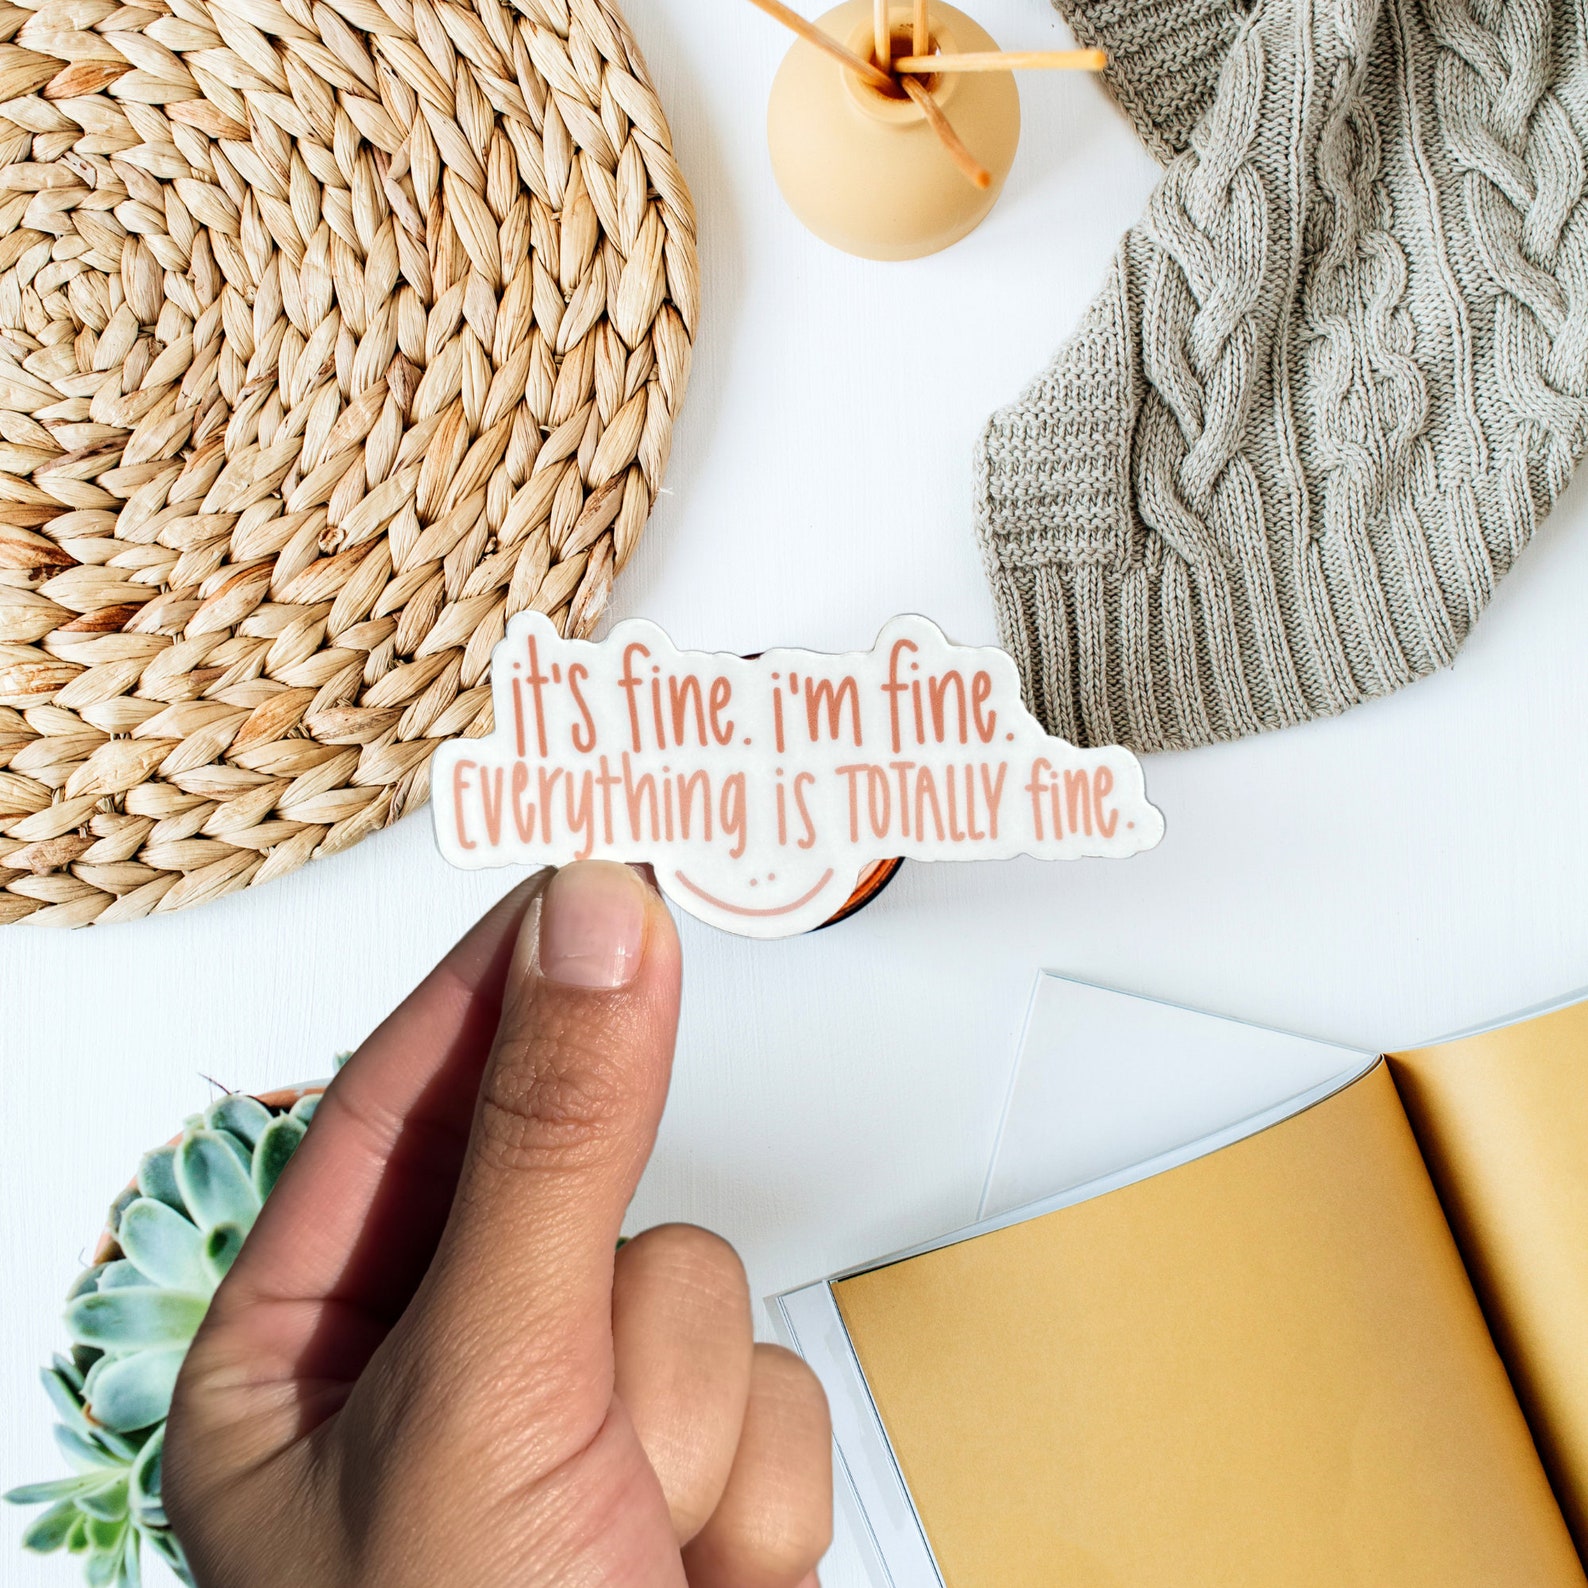 it's fine. i'm fine.
Everything is TOTALLY fine.